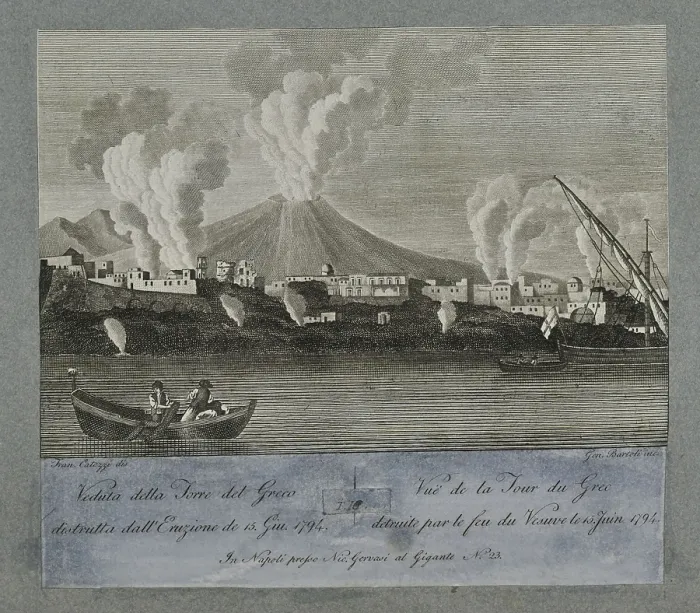 Fran. Catozzi dis.
Gen. Bartoli inc.
Veduta della Torre del Greco
distrutta dall'Eruzione de 15. Giu. 1794.
Vuë de la Tour du Grec
detruite par le feu du Vesuve le 15. Juin 1794.
In Napoli presso Nic. Gervasi al Gigante N.º 23.